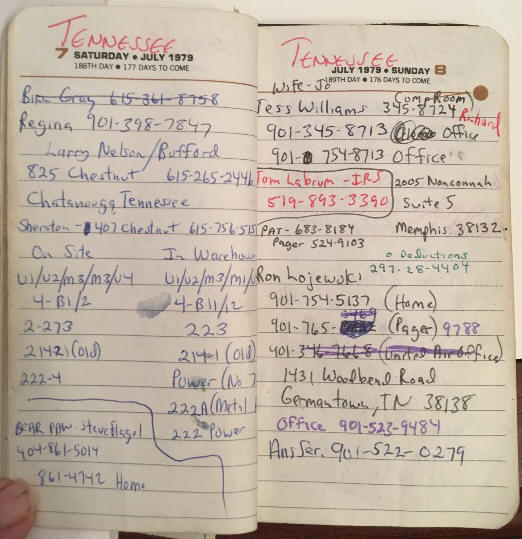 TENNESSEE
7 SATURDAY • JULY 1979
188TH DAY • 177 DAYS TO COME
Gray 615-361-8758
Regina 901-398-7847
Larry Nelson/Bufford
825 Chestnut 615-265-2446
Chatanougg Tennessee
Sheraton - 407 Chestnut 615-756-515
On Site In Warehouse
U1/U2/M3/M3/U4 U1/U2/M3/M1/
4-B1/2 4-B11/2
2-273 223
21421 (old) 214-1 (old)
222-4 Power (No
222A (Metal
222 Power
BEAR PAW Steve Flagel
404-861-5014
861-4742 Home
TENNESSEE
JULY 1979 • SUNDAY 8
189TH DAY • 176 DAYS TO COME
Wife - Jo
(Comp Room)
Tess Williams 345-8724 Richard
901-345-8713 Office
901- 754-8713 Office
Tom Labrum - IRS 2005 Nonconnah
519-893-3390 Suite 5
PAT - 683-8184 Memphis 38132
Pager 524-9103
o Deductions
297-28-4404
Ron Lojewski
901-754-5137 (Home)
901-765- (Pager) 9788
401-346-7668 (United Air Office)
1431 Woodbend Road
Germantown, TN 38138
Office 901-523-9484
Ans Ser. 901-522-0279